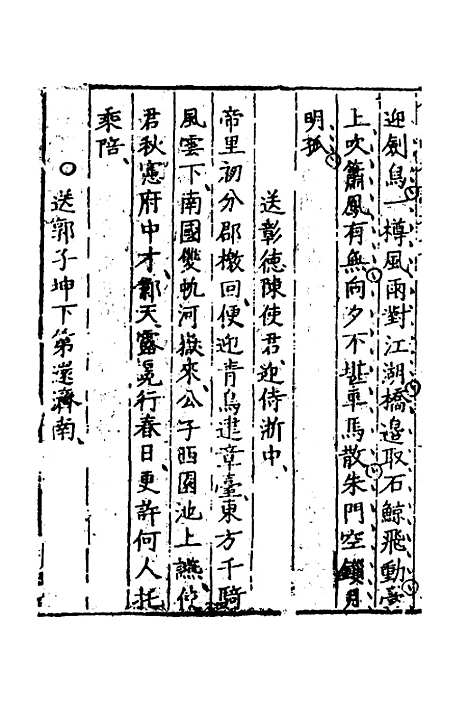 迎劍鳥一樽風雨對江湖橋邉取石鯨飛動臺
上吹簫鳳有無向夕不堪車馬散朱門空鎖月
明孤
送彰德陳使君迎侍浙中
帝里初分郡檄回便迎青鳥建章臺東方千騎
風雲下南國雙帆河嶽來公子西園池上讌使
君秋憲府中才鄴天露冕行春日更許何人托
乘陪
送郭子坤下第還濟南